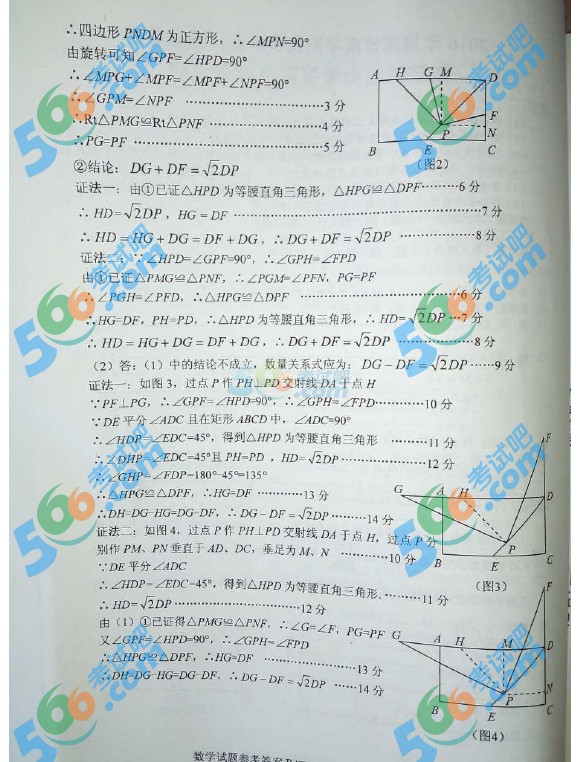 ∴四边形 PNDM 为正方形，∴∠MPN=90°
由旋转可知∠GPF=∠HPD=90°
∴∠MPG+∠MPF=∠MPF+∠NPF=90°
∴∠GPM=∠NPF ……………………3 分
∴Rt△PMG≌Rt△PNF ……………………4 分
∴PG=PF ……………………5 分
A H G M D
F
P N
B E C
(图2)
②结论：DG+DF=√2DP
证法一：由①已证△HPD 为等腰直角三角形，△HPG≌△DPF………6 分
∴ HD=√2DP，HG = DF ……………………7 分
∴ HD = HG + DG = DF + DG，∴ DG + DF = √2DP ……………8 分
证法二：∵∠HPD=∠GPF=90°，∴∠GPH=∠FPD
由①已证△PMG≌△PNF，∴∠PGM=∠PFN，PG=PF
∴∠PGH=∠PFD，∴△HPG≌△DPF ……………………6 分
∴HG=DF，PH=PD，∴△HPD 为等腰直角三角形，∴ HD=√2DP …7 分
∴ HD = HG + DG = DF + DG，∴ DG + DF = √2DP ……………8 分
（2）答：（1）中的结论不成立，数量关系式应为：DG−DF=√2DP ……9 分
证法一：如图 3，过点 P 作 PH⊥PD 交射线 DA 于点 H
∵PF⊥PG，∴∠GPF=∠HPD=90°，∴∠GPH=∠FPD…………10 分
∵DE 平分∠ADC 且在矩形 ABCD 中，∠ADC=90°
∴∠HDP=∠EDC=45°，得到△HPD 为等腰直角三角形 ………11 分
∴∠DHP=∠EDC=45°且 PH=PD，HD=√2DP ……………………12 分
∴∠GHP=∠FDP=180°-45°=135°
∴△HPG≌△DPF，∴HG=DF ……………13 分
∴DH=DG-HG=DG-DF，∴ DG−DF = √2DP ………14 分
F
G A H D
P
B E C
(图3)
证法二：如图 4，过点 P 作 PH⊥PD 交射线 DA 于点 H，过点 P 分
别作 PM、PN 垂直于 AD、DC，垂足为 M、N ………………10 分
∵DE 平分∠ADC
∴∠HDP=∠EDC=45°，得到△HPD 为等腰直角三角形．………11 分
∴ HD=√2DP ……………………12 分
由（1）①已证得△PMG≌△PNF，∴∠G=∠F，PG=PF
又∠GPF=∠HPD=90°，∴∠GPH=∠FPD
∴△HPG≌△DPF，∴HG=DF ……………………13 分
∴DH=DG-HG=DG-DF，∴ DG−DF = √2DP ……14 分
F
G A H M D
P N
B E C
(图4)
数学试题参考答案
566考试吧
.com